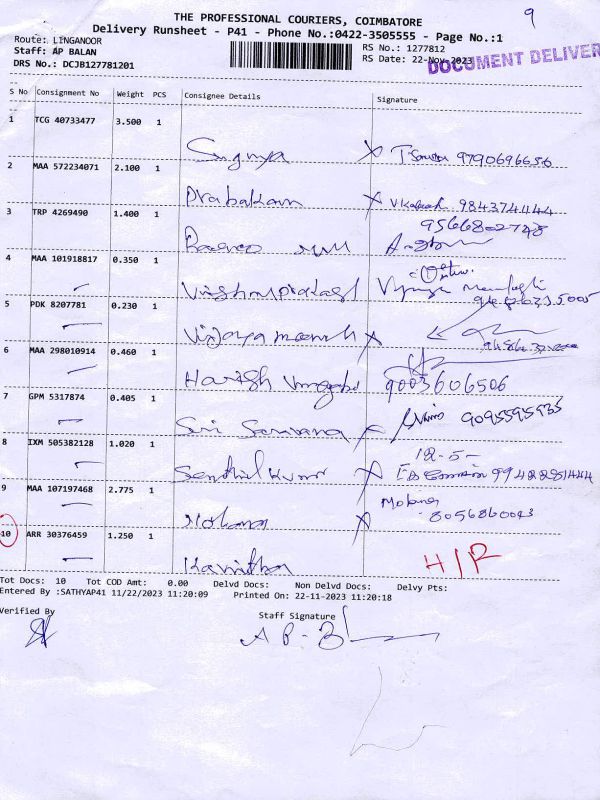 THE PROFESSIONAL COURIERS, COIMBATORE
9
Delivery Runsheet - P41 - Phone No.:0422-3505555 - Page No.:1
Route: LINGANOOR
Staff: AP BALAN
DRS No.: DCJB127781201
RS No.: 1277812
RS Date: 22-Nov-2023
DOCUMENT DELIVER
S No Consignment No Weight PCS Consignee Details Signature
1 TCG 40733477 3.500 1
Sugnya X 9790696656
2 MAA 572234071 2.100 1
Prabakaran X 984374444
3 TRP 4269490 1.400 1
9566802748
4 MAA 101918817 0.350 1
5 PDK 8207781 0.230 1
X
6 MAA 298010914 0.460 1
Harish 9003606506
7 GPM 5317874 0.405 1
Sri Saravana X 9095595935
8 IXM 505382128 1.020 1
12-5-
Senthil Kumar X
9 MAA 107197468 2.775 1
Mohana
Mohana X 8056860043
10 ARR 30376459 1.250 1
Kavitha H/R
Tot Docs: 10 Tot COD Amt: 0.00 Delvd Docs: Non Delvd Docs: Delvy Pts:
Entered By :SATHYAP41 11/22/2023 11:20:09 Printed On: 22-11-2023 11:20:18
Verified By
Staff Signature